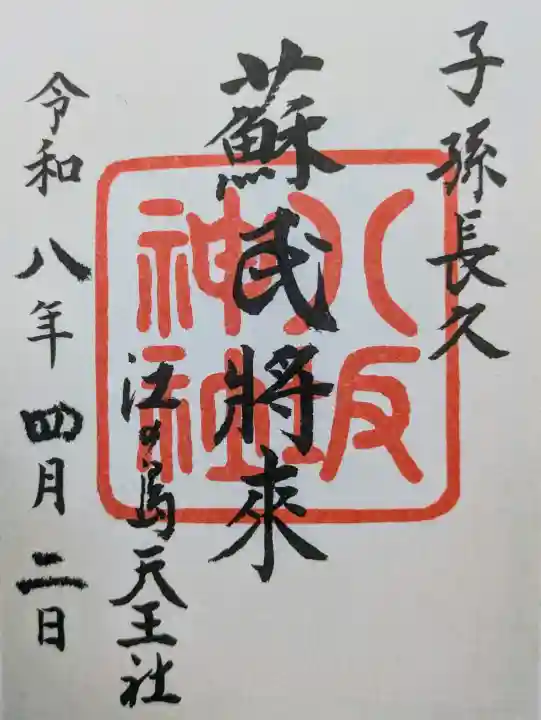 子孫長久
蘇民將來
江の島天王社
令和八年四月二日
八坂
神社